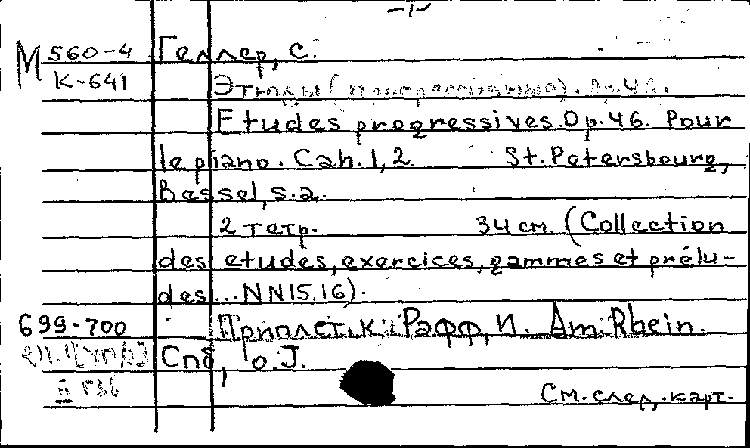 -1-
М 560-4 Геллер, С.
К-641 Этюды (прогрессивные). Op.46.
Etudes progressives. Op.46. Pour
le piano. Cah.1,2. St.Petersbourg,
Bessel, s.a.
2 тетр. 34 см. (Collection
des etudes, exercices, gammes et prélu-
des...NN15,16).
699-700 Приплет. к: Рафф, И. Am Rhein.
Спб, o.J.
См. след. карт.